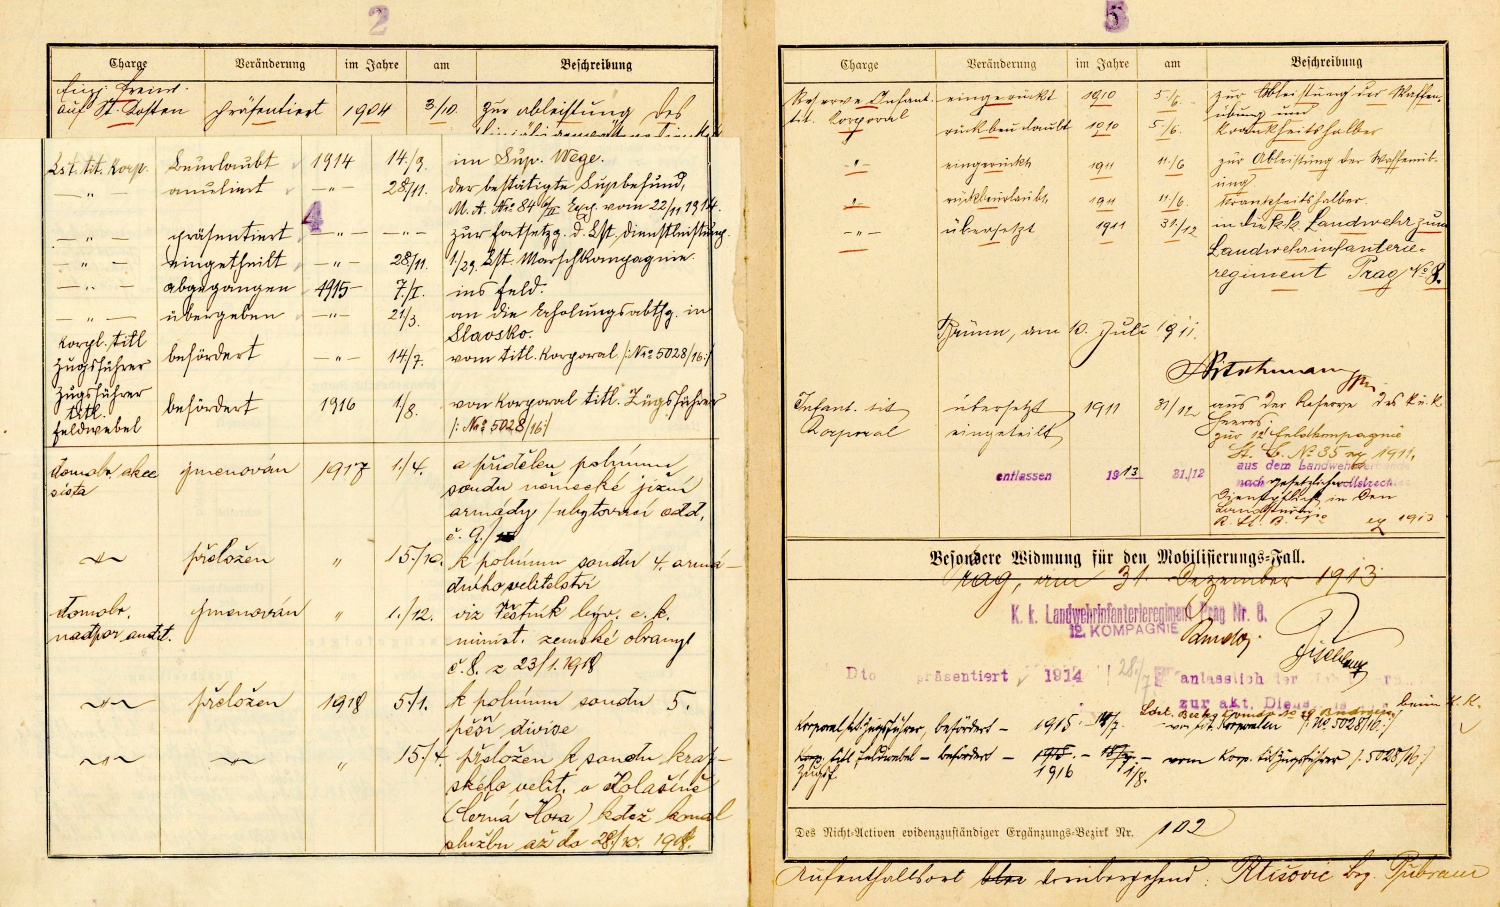 2
Charge Veränderung im Jahre am Beschreibung
auf St. Kosten präsentiert 1904 3/10. zur Ableistung des
Lst. tit. Korp. beurlaubt 1914 14./9. im Sup. Wege.
— " — anuliert — " — 28/11. der bestätigte Supbefund,
M. A. No 84 Exp. vom 22/11 1914.
4
— " — präsentiert — " — — " — zur Fortsetzg. d. Lst. Dienstleistung.
— " — eingetheilt — " — 28/11. 1/29. Lst. Marschkompagnie.
— " — abgegangen 1915 7./I. ins Feld.
— " — übergeben — " — 21/3. an die Erholungsabthg. in
Slavsko.
Korpl. titl
Zugsführer befördert — " — 14/7. vom titl. Korporal /: No 5028/16 :/
Zugsführer
titl.
Feldwebel befördert 1916 1/8. von Korporal titl. Zugsführer
/: No 5028/16 :/
domobr. akce
sista jmenován 1917 1./4. a přidělen polnímu
soudu německé jižní
armády /ubytovací odd.
č. 9./
přeložen " 15./10. k polnímu soudu 4. armá-
dního velitelství
domobr.
nadpor. audit. jmenován " 1./12. viz Věstník býv. c. k.
minist. zemské obrany
č. 8. z 23/1. 1918
přeložen 1918 5./1. k polnímu soudu 5.
pěší divise
" 15./4. přeložen k soudu kraj-
ského velit. v Kolašině
(Černá Hora) kdež konal
službu až do 28./10. 1918.
5
Charge Veränderung im Jahre am Beschreibung
Reserve Infant. eingerückt 1910 5./6. zur Ableistung der Waffen-
tit. Korporal übung und
rückbeurlaubt 1910 5./6. krankheitshalber
— " — eingerückt 1911 11./6 zur Ableistung der Waffenüb-
ung
— " — rückbeurlaubt 1911 11./6. krankheitshalber.
— " — übersetzt 1911 31/12 in die k.k. Landwehr zum
Landwehrinfanterie-
regiment Prag No 8.
Brünn, am 10. Juli 1911.
Infant. tit. übersetzt 1911 31/12 aus der Reserve des k. u. k.
Korporal eingeteilt Heeres.
zur 12 Feldkompagnie
No 35 ex 1911.
entlassen 1913 31./12 aus dem Landwehrverbande
nach gesetzlich vollstreckter
Dienstpflicht in den
Landsturm
ex 1913
Besondere Widmung für den Mobilisierungs-Fall.
Prag, am 31. Dezember 1913
K. k. Landwehrinfanterieregiment Prag Nr. 8.
12. KOMPAGNIE
Dto präsentiert 1914 28./7 anlasslich der
zur akt. beim k. k.
Korporal tit. Zugsführer, befördert — 1915 — 14/7. — vom tit. Korporalen /: No 5028/16 :/
Korp. titl Feldwebel — befördert — 1915 — vom Korp. tit. Zugsführer /: 5028/16 :/
Zugsf. 1916 1/8.
Des Nicht-Activen evidenzzuständiger Ergänzungs-Bezirk Nr. 102
Aufenthaltsort vorübergehend: Rtišovic Bez. Příbram